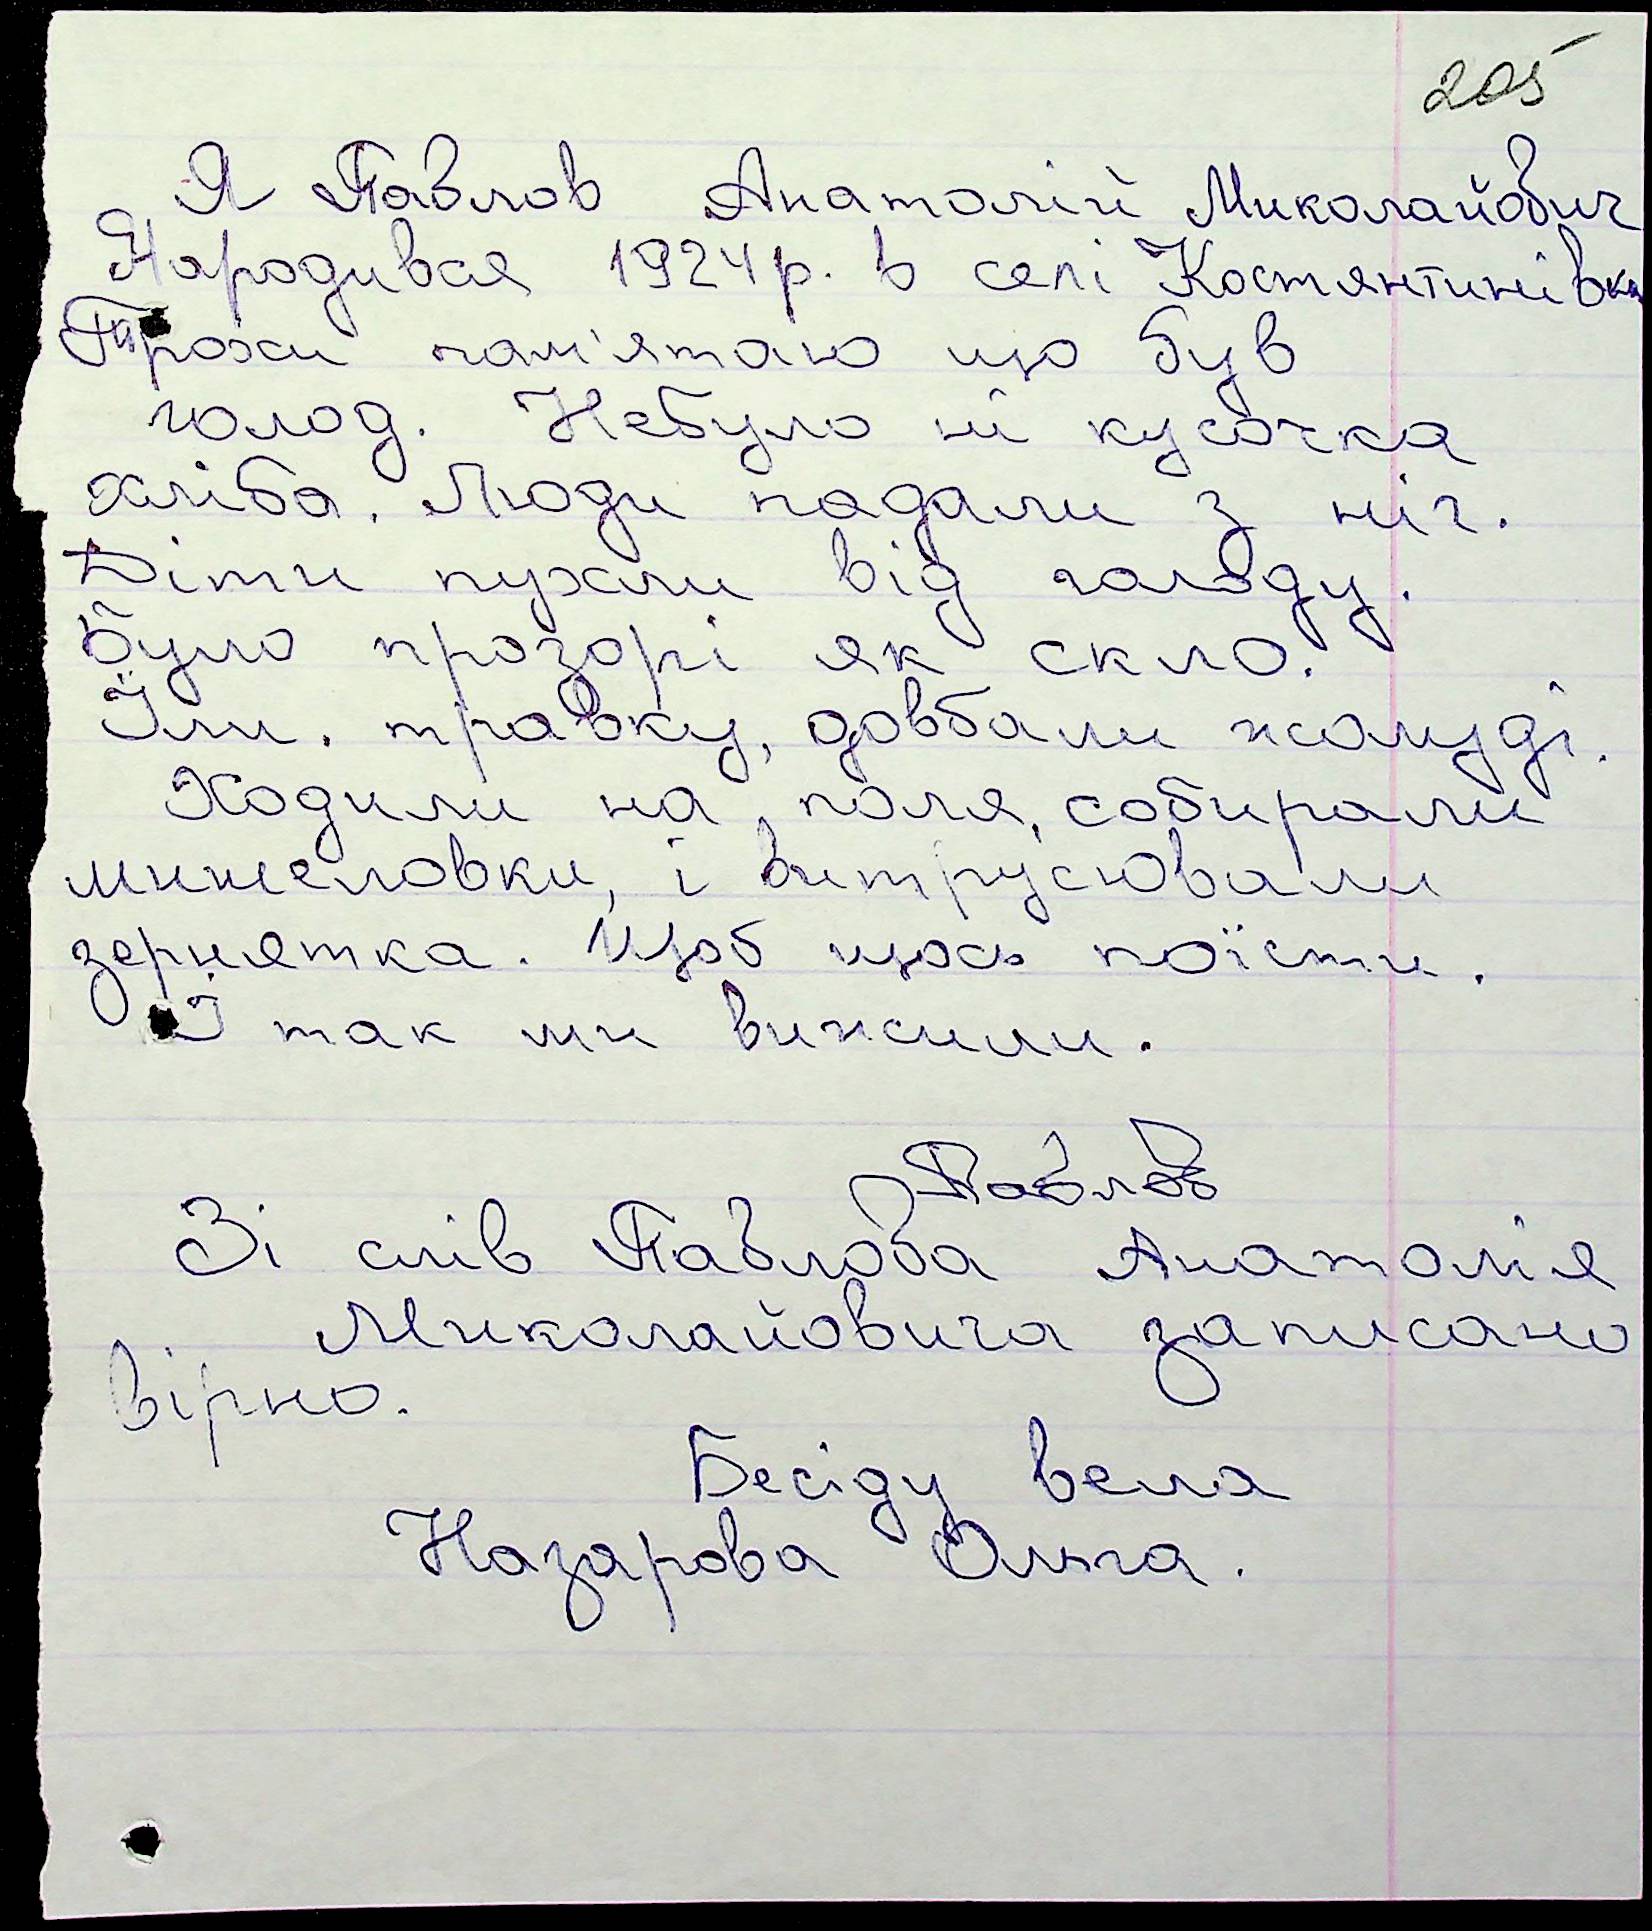 205
Я Павлов Анатолій Миколайович
Народився 1924р. в селі Костянтинівка
Трохи пам'ятаю що був
голод. Небуло ні кусочка
хліба. Люди падали з ніг.
Діти пухли від голоду.
Було прозорі як скло.
Їли. травку, довбали жолуді.
Ходили на поля, собирали
мишеловки, і витрусювали
зернятка. Щоб щось поїсти.
І так ми вижили.
Павлов
Зі слів Павлова Анатолія
Миколайовича записано
вірно.
Бесіду вела
Назарова Ольга.